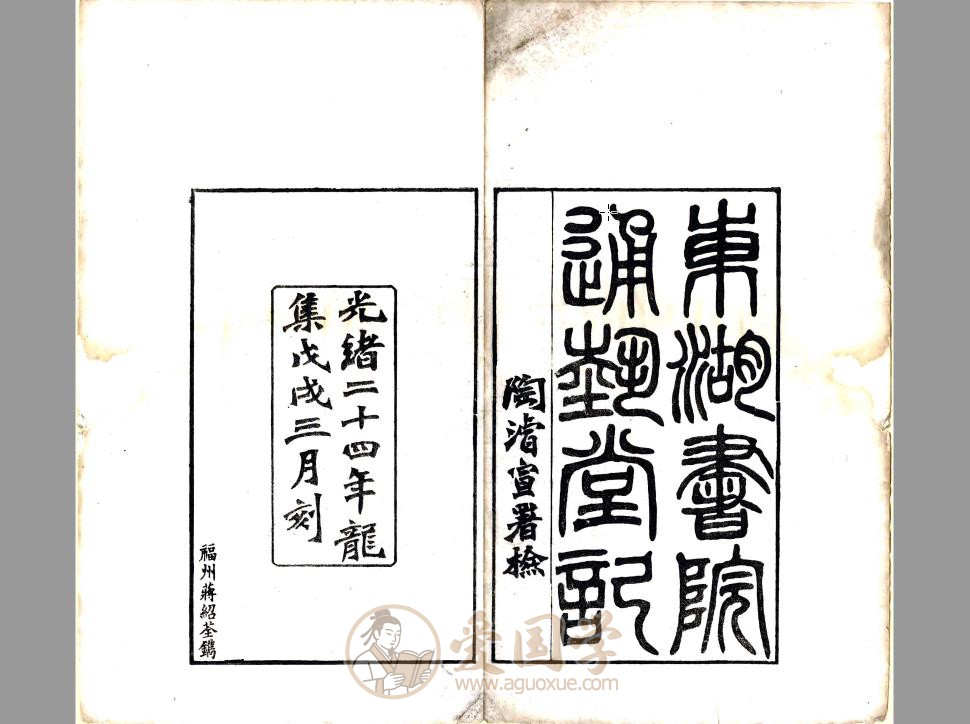 東湖書院
通埶堂記
陶濬宣署檢
光緒二十四年龍
集戊戌三月刻
福州蔣紹荃鐫
爱国学
www.aguoxue.com